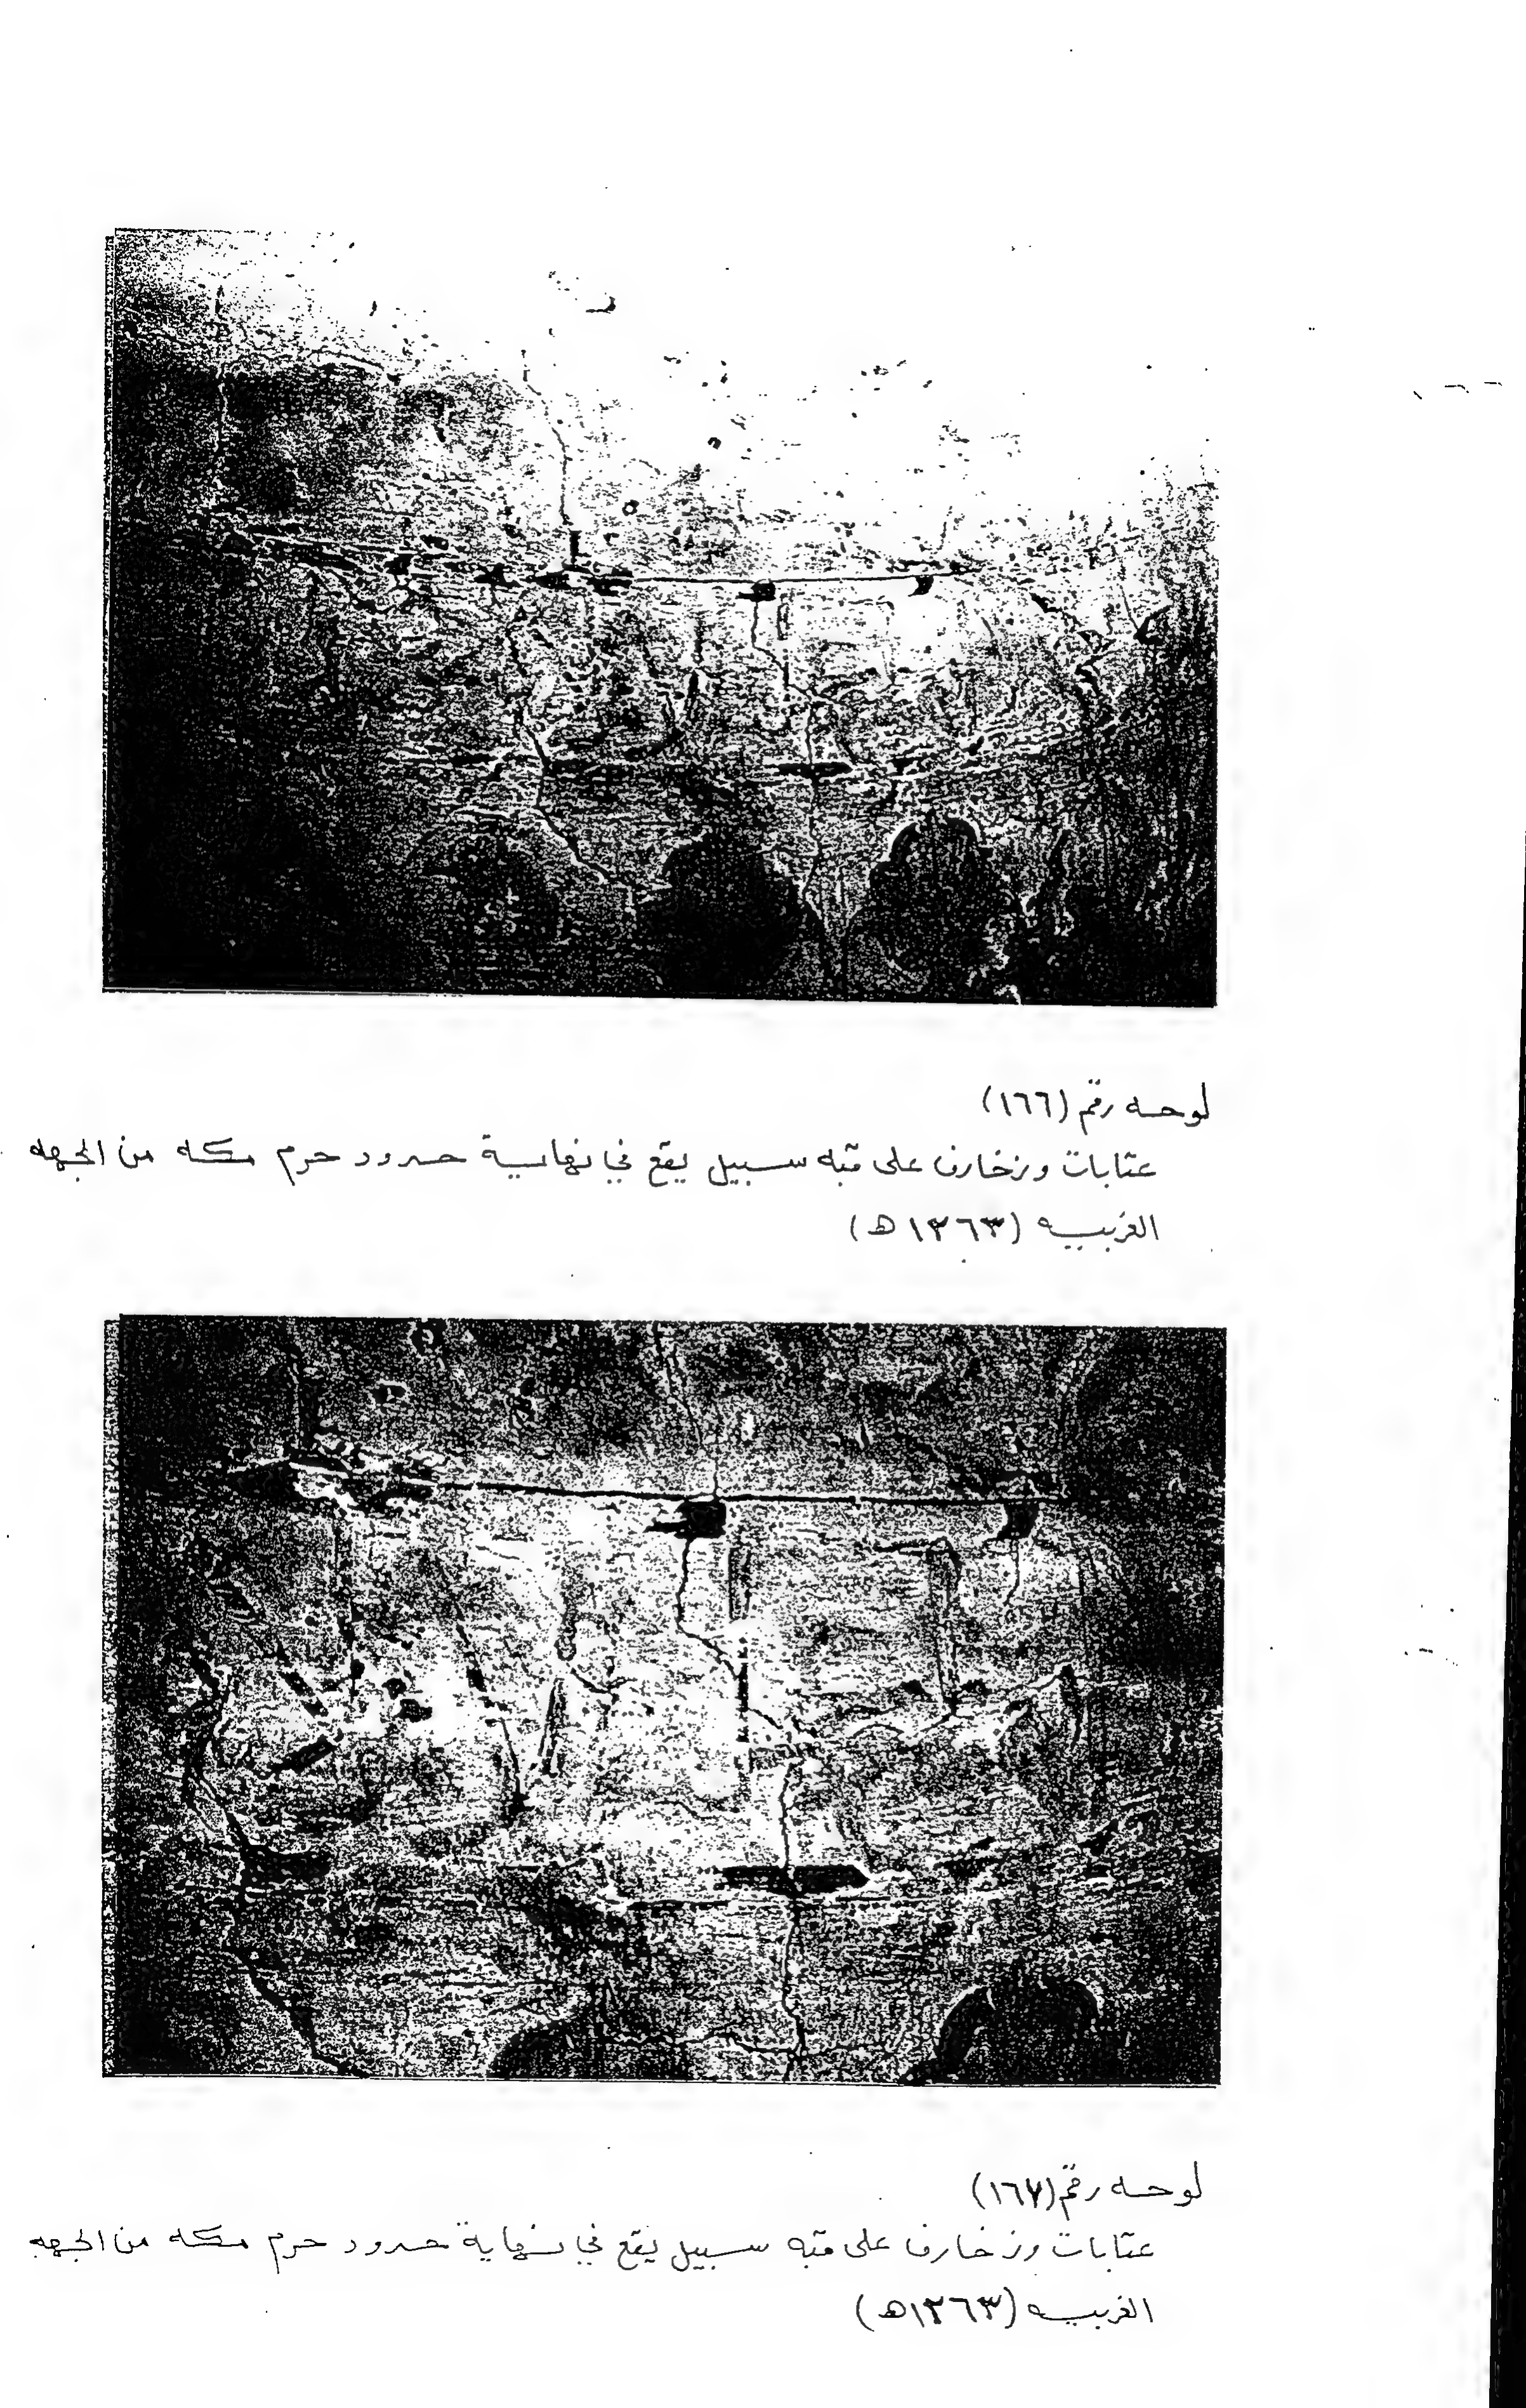 لوحه رقم (١٦٦)
كتابات وزخارف على قبه سبيل يقع في نهاية حدود حرم مكه من الجهه
الغربيه (١٢٦٣ه)
لوحه رقم (١٦٧)
كتابات وزخارف على قبه سبيل يقع في نهاية حدود حرم مكه من الجهه
الغربيه (١٢٦٣ه)